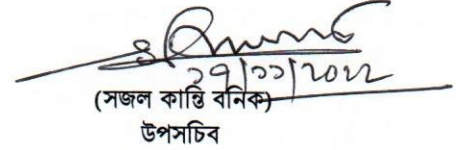 ২৭/১১/২০২২
(সজল কান্তি বনিক)
উপসচিব